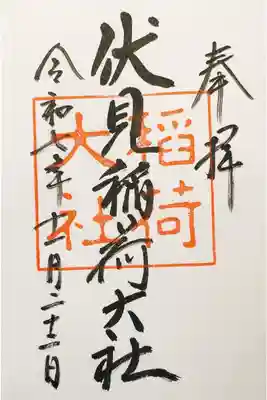 奉拝
伏見稲荷大社
稲荷
大社
令和七年十一月二十二日